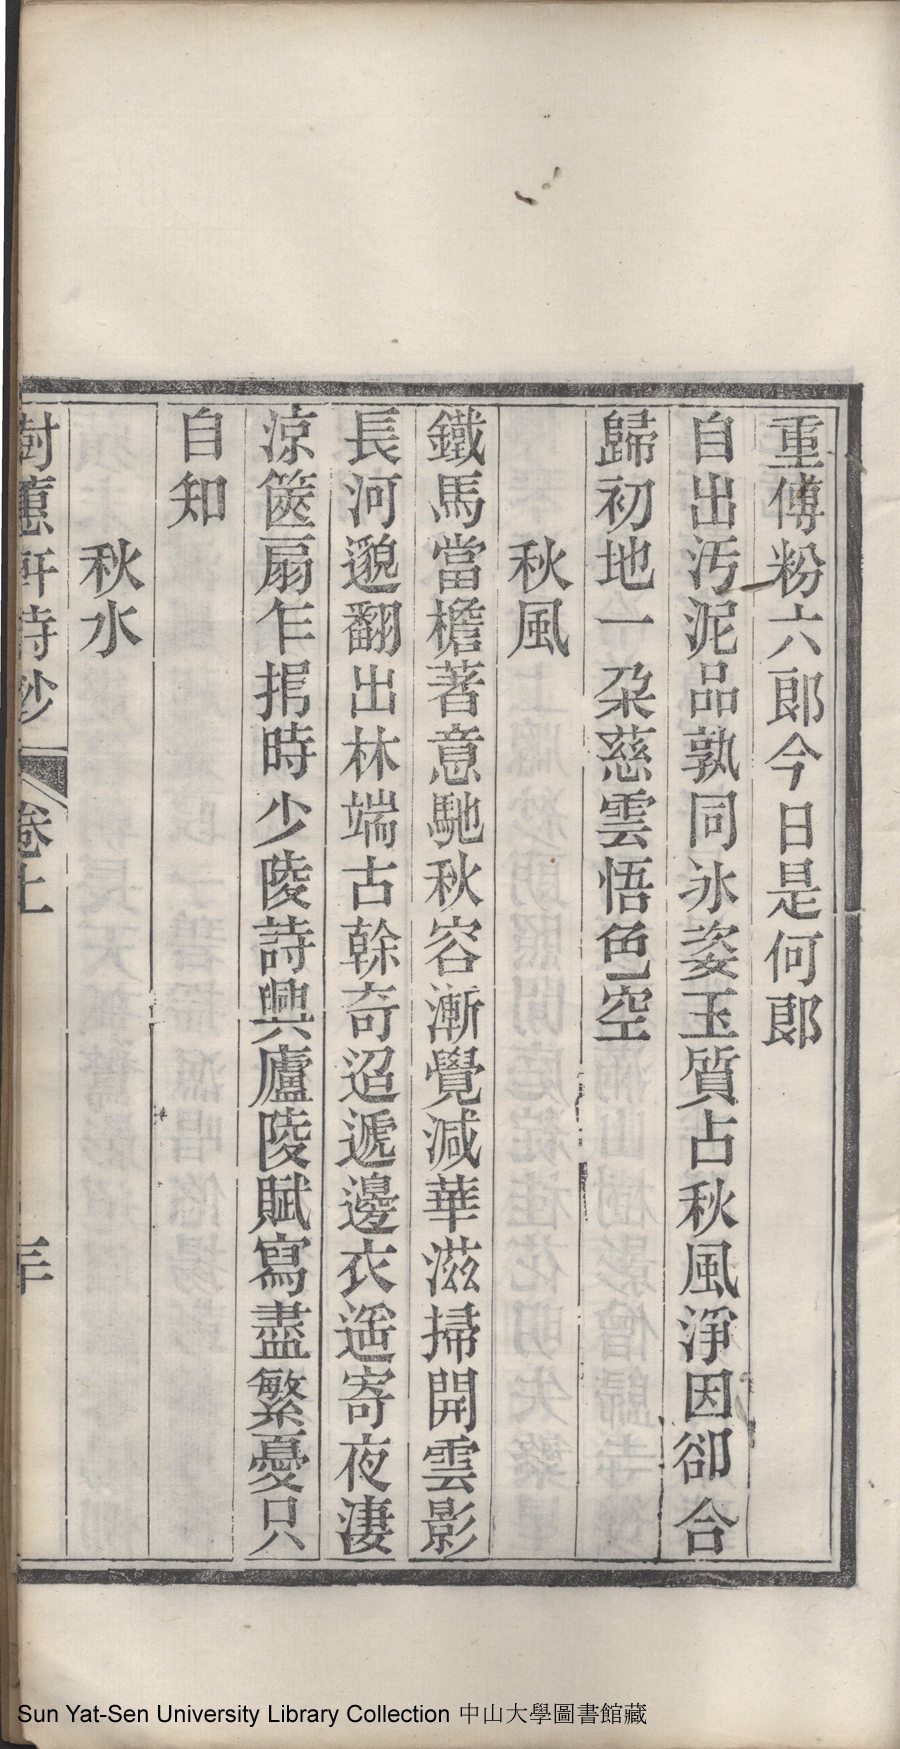 重傅粉六郎今日是何郎
自出污泥品孰同冰姿玉質占秋風淨因卻合
歸初地一朶慈雲悟色空
秋風
鐵馬當檐著意馳秋容漸覺減華滋掃開雲影
長河邈翻出林端古榦奇迢遞邊衣遥寄夜淒
涼篋扇乍捐時少陵詩興廬陵賦寫盡繁憂只
自知
秋水
樹蕙軒詩鈔 卷上
Sun Yat-Sen University Library Collection 中山大學圖書館藏